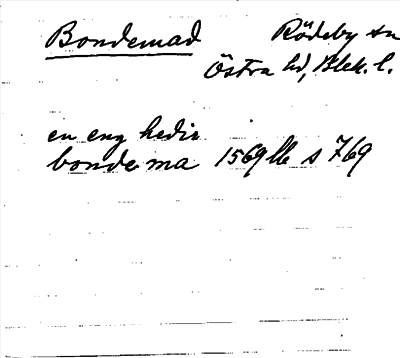 Bondemad Rödeby sn
Östra hd, Blek. l.
en eng hedir
bonde ma 1569 lb s 769